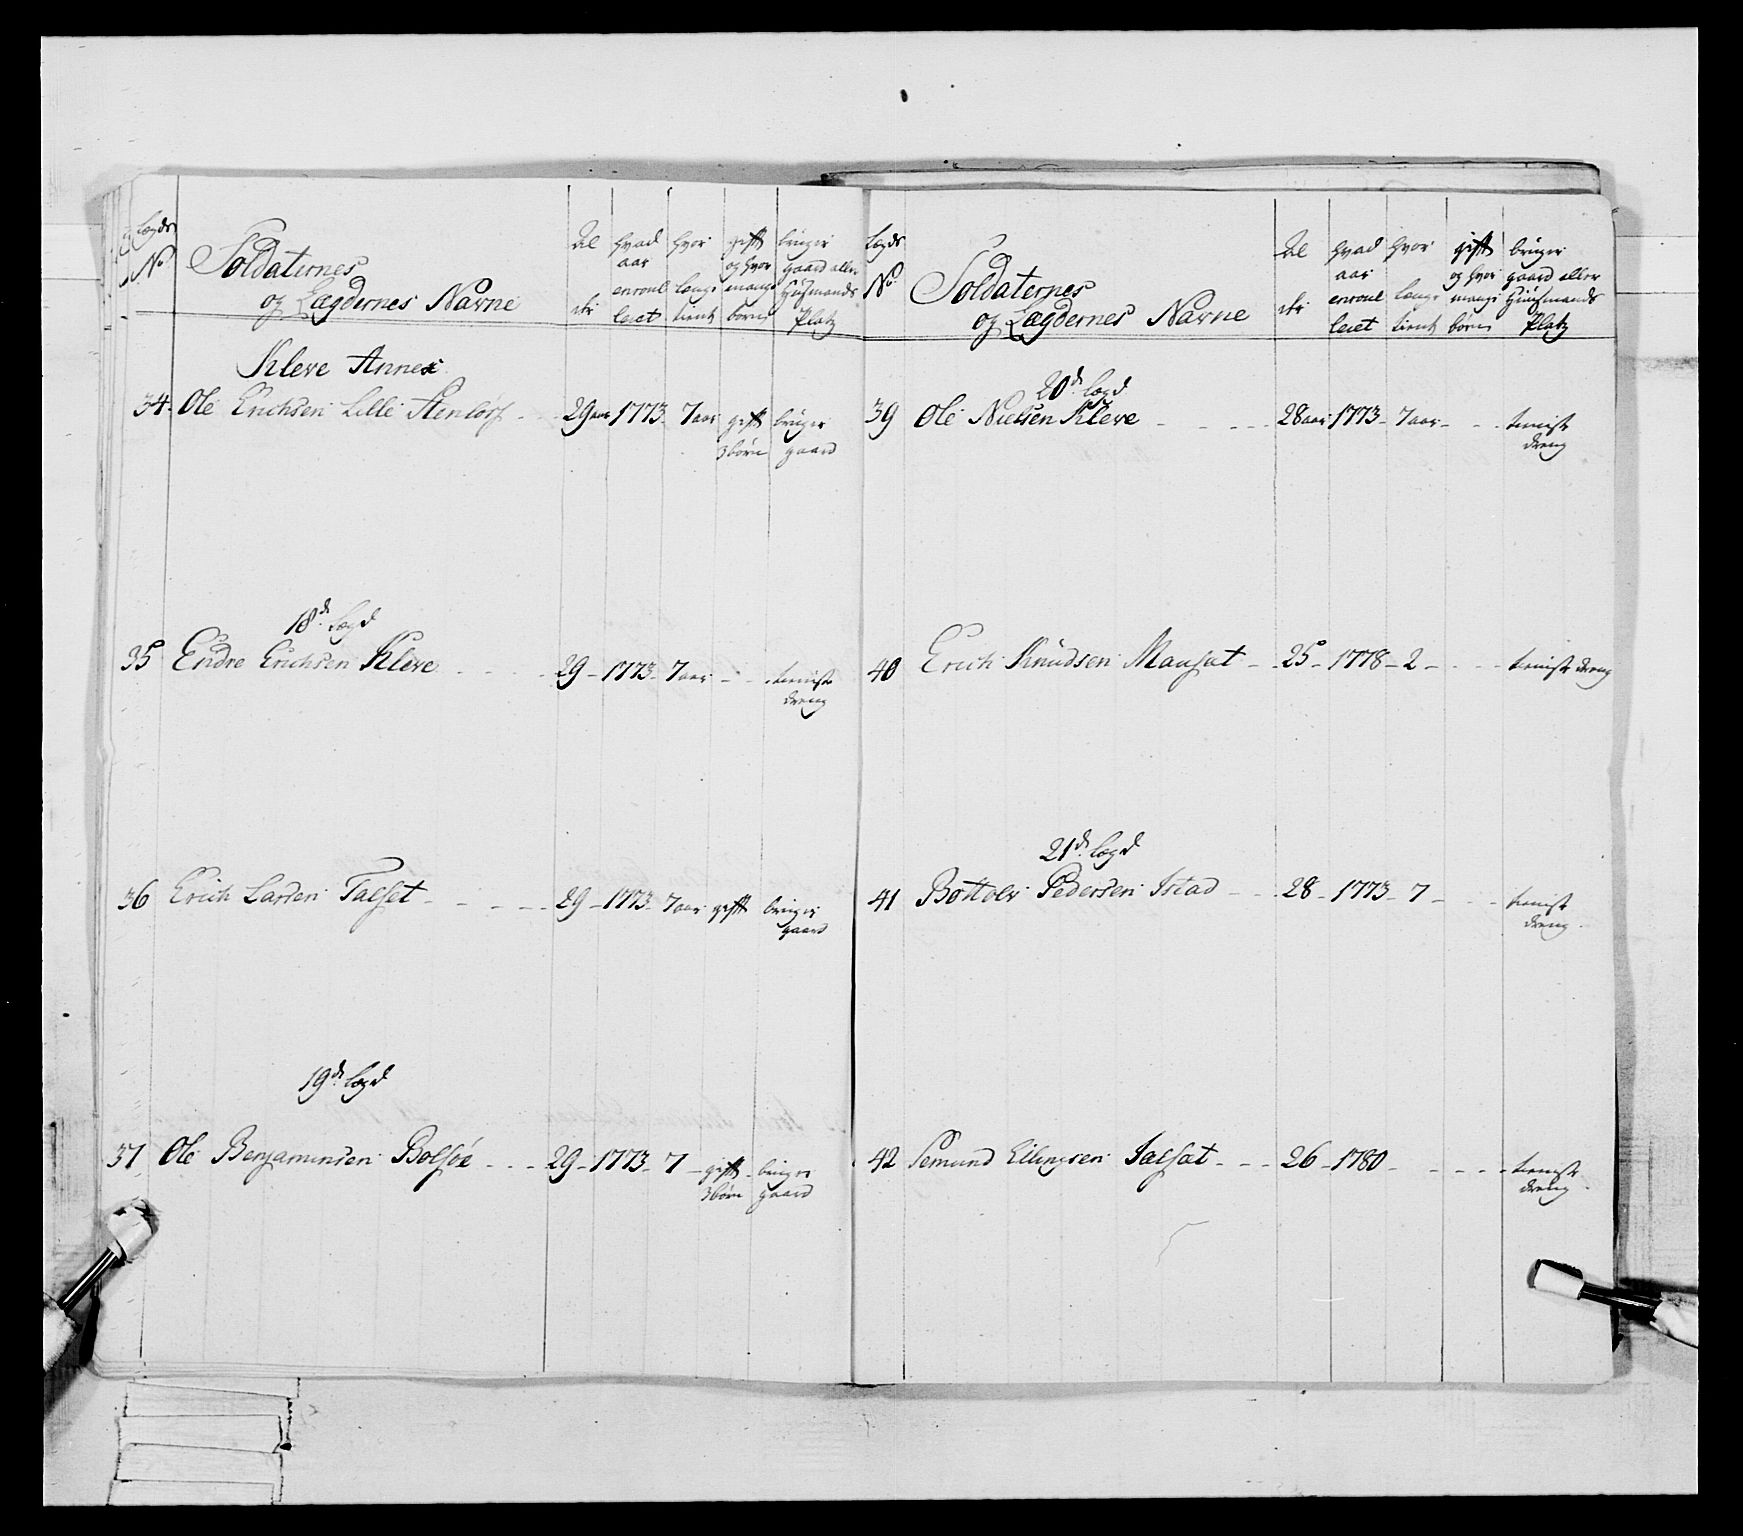 Lægds
No
Soldaternes
og Lægdernes Navne
Al
der
hvad
aar
enroul
leret
hvor
længe
tient
gift
og hvor
mange
børn
bruger
gaard eller
Huusmands
Platz
Kleve Annex
34 Ole Erichsen Lille Stenløs 29 aar 1773 7 aar gift bruger
3 børn gaard
18de Lægd
35 Endre Erichsen Kleve 29 1773 7 aar tienist
dreng
36 Erich Larsen Talset 29 1773 7 aar gift bruger
gaard
19de Lægd
37 Ole Benjaminsen Bolsøe 29 1773 7 gift bruger
3 børn gaard
Lægds
No
Soldaternes
og Lægdernes Navne
Al
der
hvad
aar
enroul
leret
hvor
længe
tient
gift
og hvor
mange
børn
bruger
gaard eller
Huusmands
Platz
20de Lægd
39 Ole Nielsen Kleve 28 aar 1773 7 aar tienist
dreng
40 Erich Knudsen Mausat 25 1778 2 tienist dreng
21de Lægd
41 Bottolv Pedersen Istad 28 1773 7 tienist
dreng
42 Semund Ellingsen Talsat 26 1780 tienist
dreng